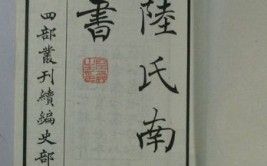 陸氏南
書
四部叢刊續編史部